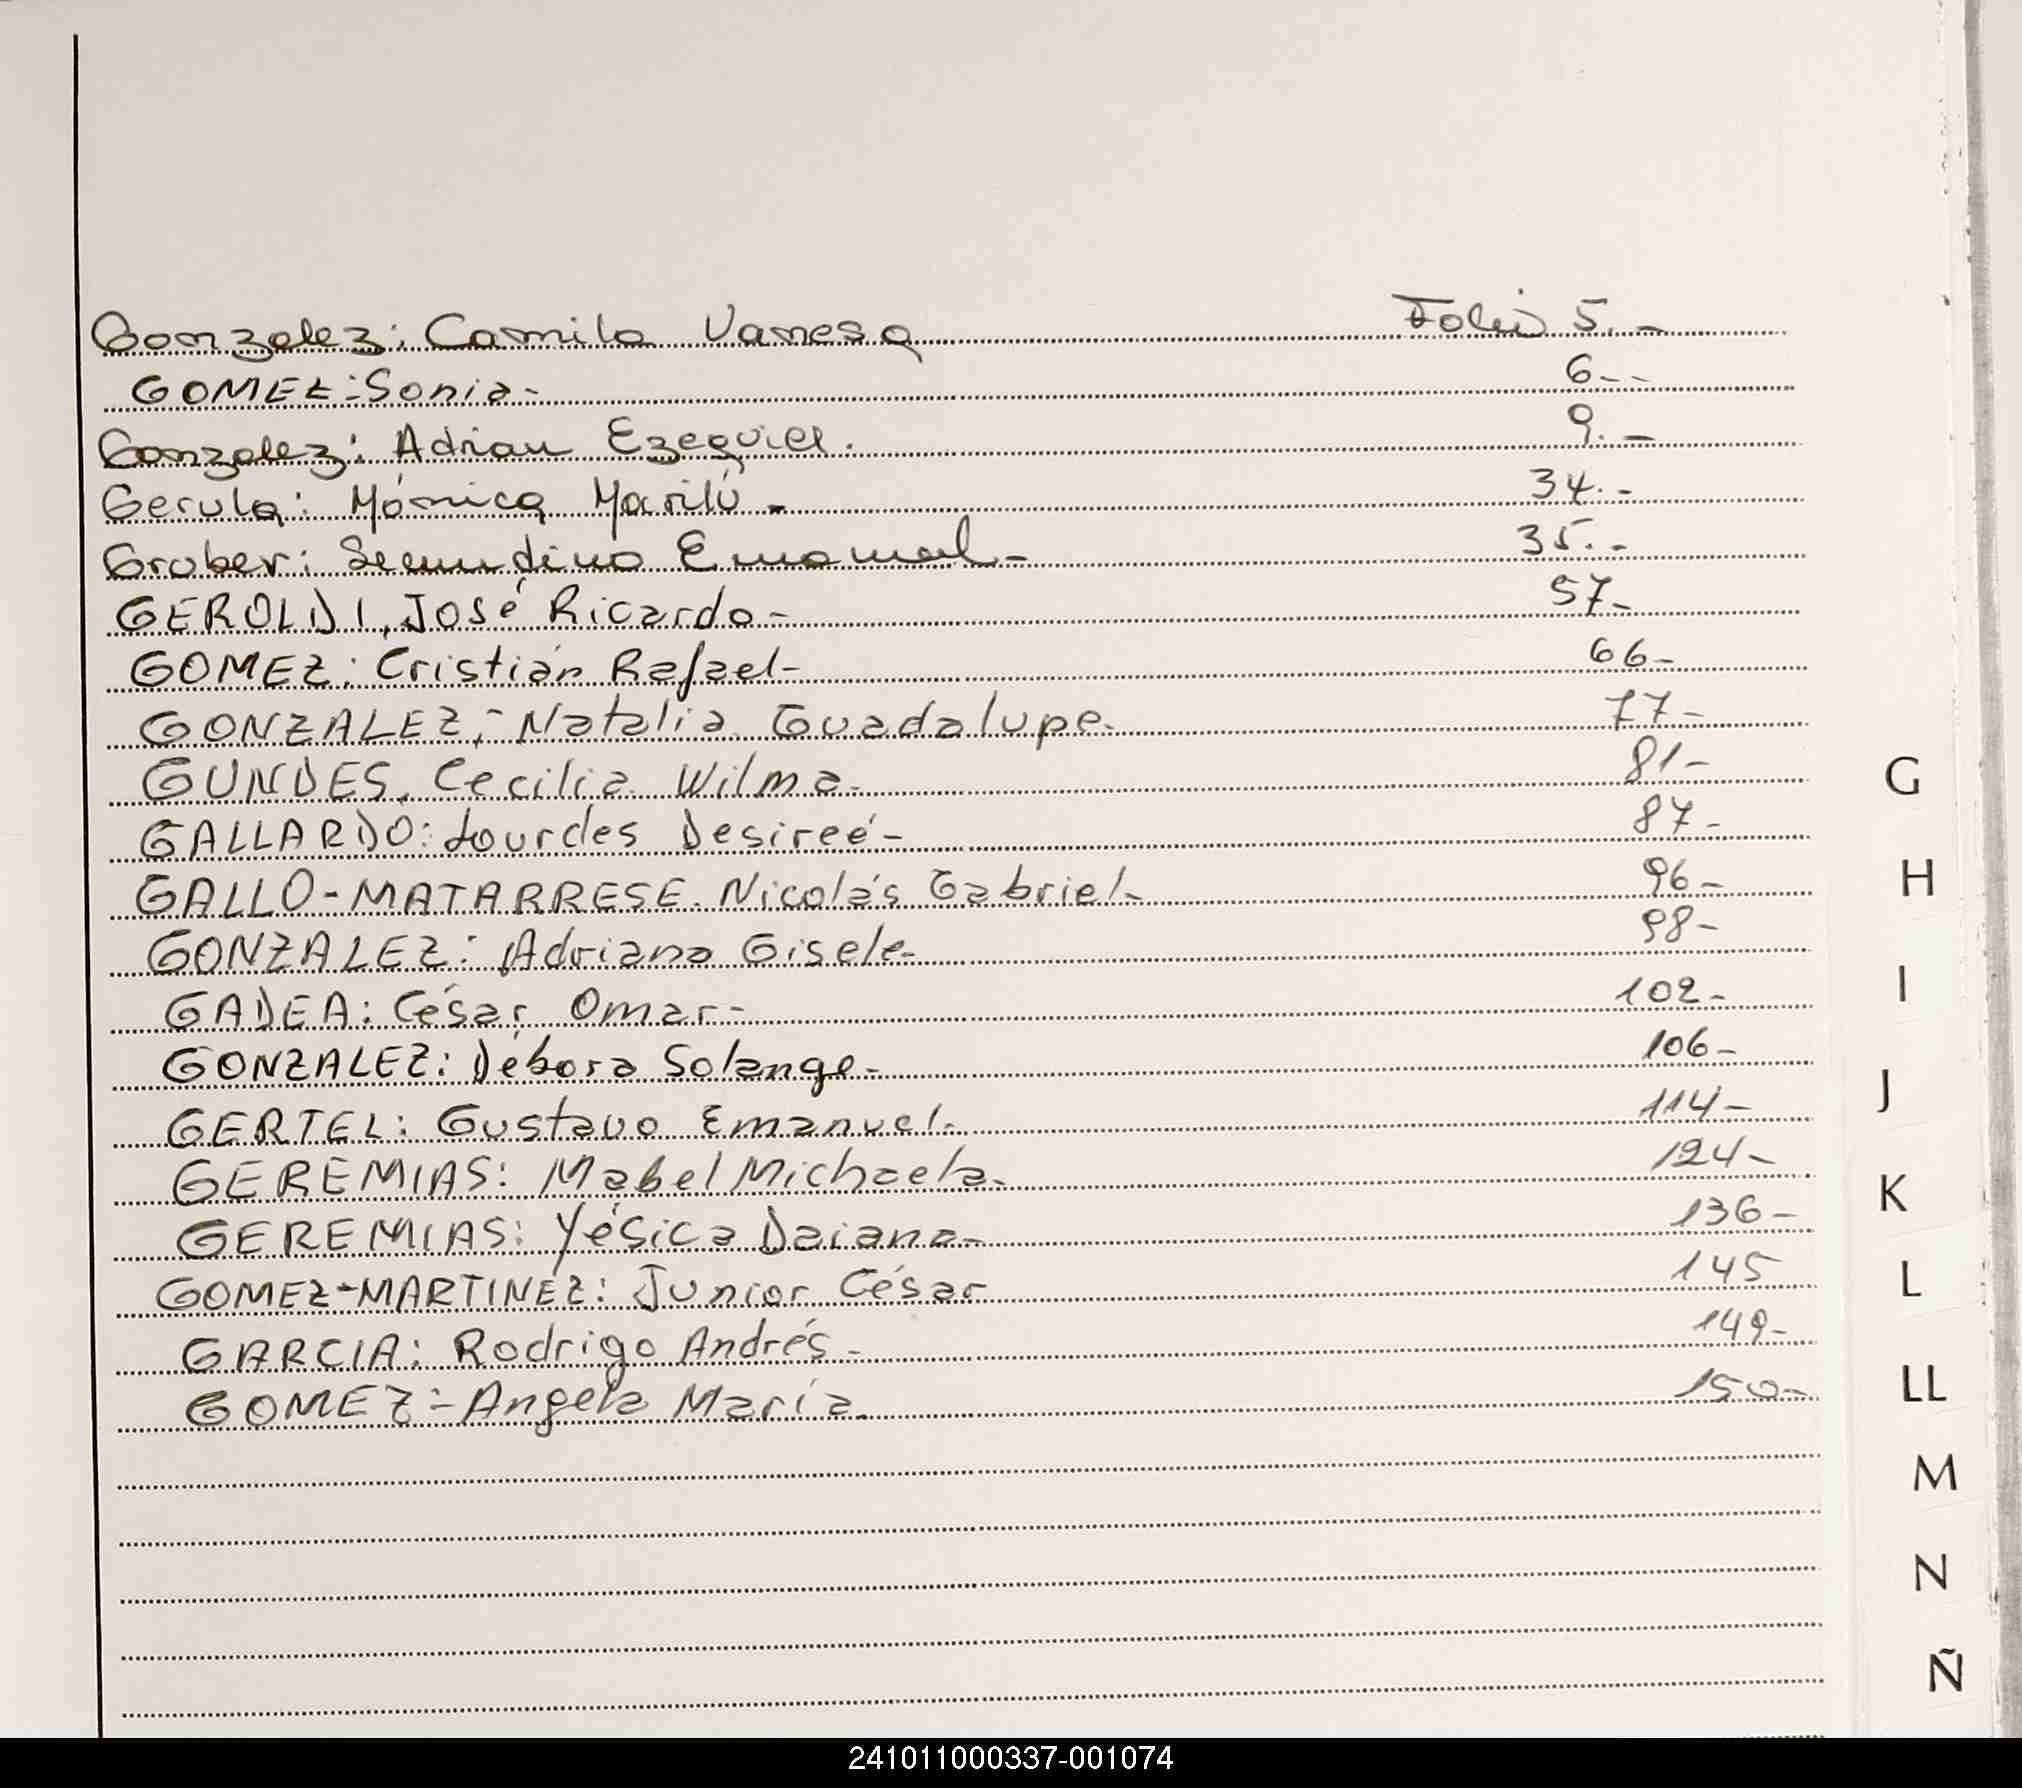 Gonzalez: Camila Vanesa Folio 5.-
GOMEZ: Sonia- 6--
Gonzalez: Adrian Ezequiel. 9.-
Gerula: Mónica Marilú.- 34.-
Gruber: Secundino Emanuel- 35.-
GEROLDI, José Ricardo- 57-
GOMEZ: Cristián Rafael- 66-
GONZALEZ;- Natalia Guadalupe- 77-
GUNDES, Cecilia Wilma- 81-
GALLARDO: Lourdes Desireé- 87-
GALLO-MATARRESE. Nicolás Gabriel- 96-
GONZALEZ: Adriana Gisele- 98-
GADEA: César Omar- 102-
GONZALEZ: Débora Solange- 106-
GERTEL: Gustavo Emanuel- 114-
GEREMIAS: Mabel Michaela- 124-
GEREMIAS: Yésica Daiana- 136-
GOMEZ-MARTINEZ: Junior César 145
GARCIA: Rodrigo Andrés- 149-
GOMEZ:- Angela María- 150-
G
H
I
J
K
L
LL
M
N
Ñ
241011000337-001074